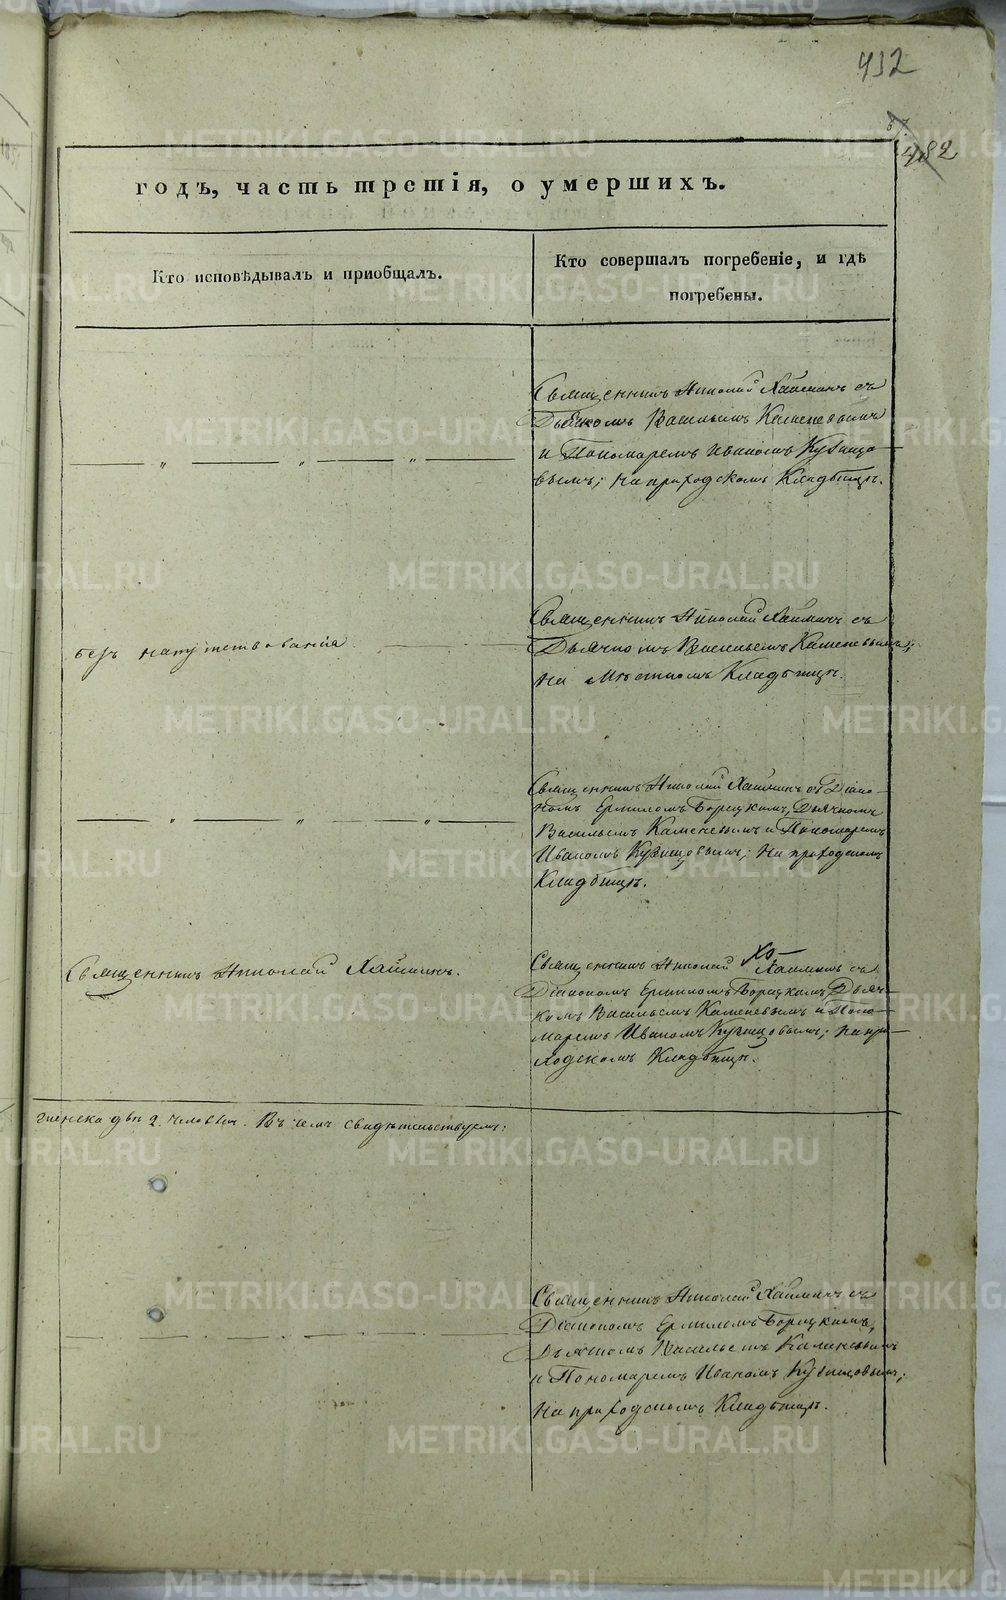 432
482
годъ, часть третія, о умершихъ.
Кто исповѣдывалъ и приобщалъ.
Кто совершалъ погребеніе, и гдѣ
погребены.
Священникъ Николай Хайминъ съ
Дьячкомъ Васильемъ Каменевымъ
и Пономаремъ Иваномъ Кузнецо
вымъ; на приходскомъ Кладбищѣ.
безъ напутствованія
Священникъ Николай Хайминъ съ
Дьячкомъ Васильемъ Каменевымъ;
на мѣстномъ Кладбищѣ.
Священникъ Николай Хайминъ съ Діако-
номъ Ермиломъ Борецкимъ, Дьячкомъ
Васильемъ Каменевымъ и Пономаремъ
Иваномъ Кузнецовымъ; на приходскомъ
Кладбищѣ.
Священникъ Николай Хайминъ.
Хо
Священникъ Николай Хайминъ съ
Діакономъ Ермиломъ Борецкимъ, Дьяч-
комъ Васильемъ Каменевымъ и Поно-
маремъ Иваномъ Кузнецовымъ; на при-
ходскомъ Кладбищѣ.
женска двѣ 2. человѣч. Въ чемъ свидѣтельствуемъ:
Священникъ Николай Хайминъ съ
Діакономъ Ермиломъ Борецкимъ,
Дьячкомъ Васильемъ Каменевымъ
и Пономаремъ Иваномъ Кузнецовымъ;
на приходскомъ Кладбищѣ.
METRIKI.GASO-URAL.RU